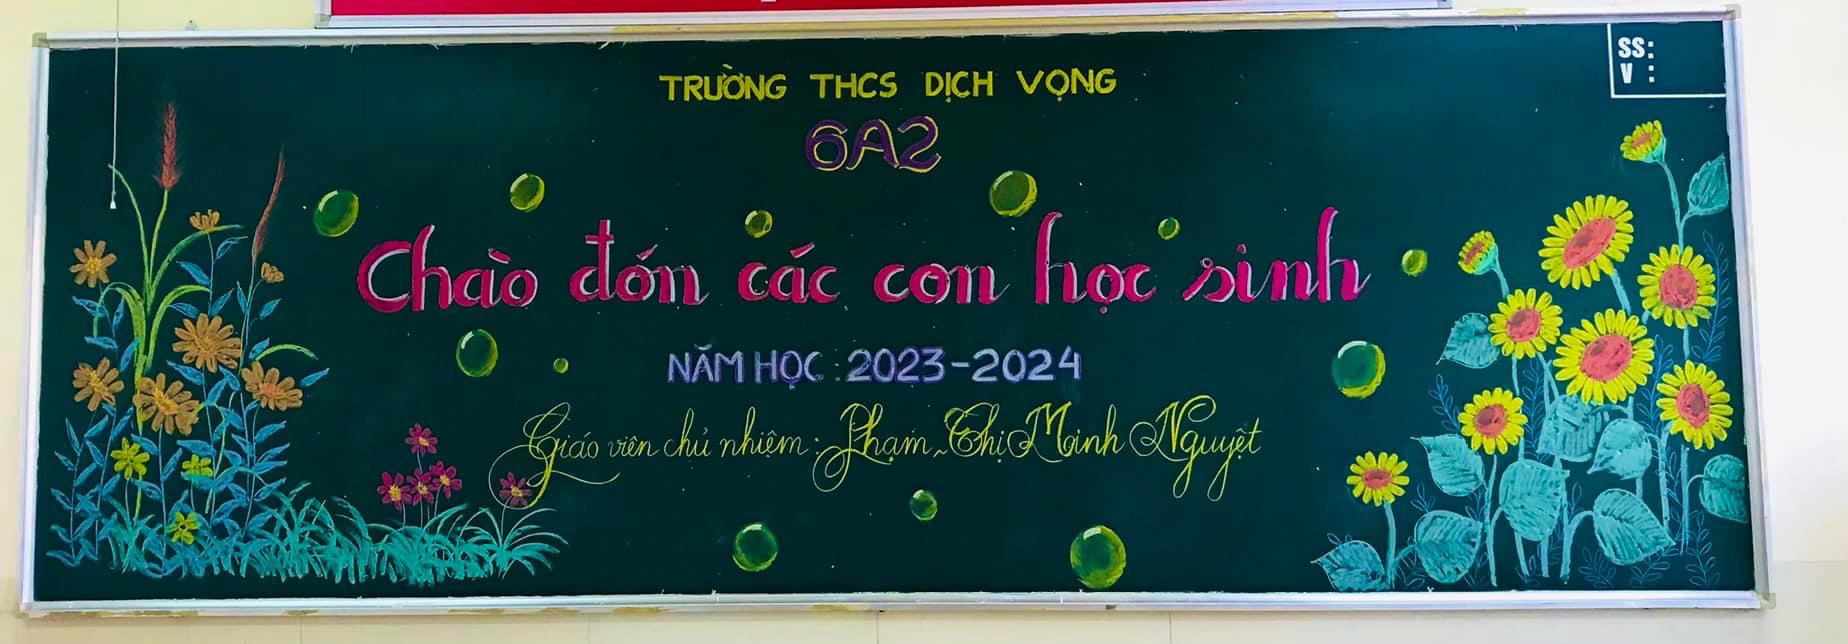 TRƯỜNG THCS DỊCH VỌNG
SS:
V :
6A2
Chào đón các con học sinh
NĂM HỌC : 2023-2024
Giáo viên chủ nhiệm : Phạm Thị Minh Nguyệt